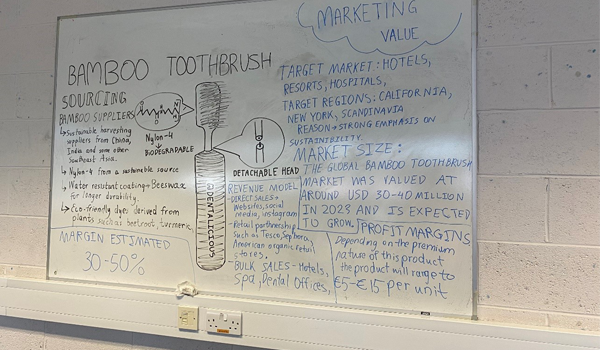 BAMBOO TOOTHBRUSH
SOURCING
BAMBOO SUPPLIERS
↳ Sustainable harvesting
suppliers from China,
India and some other
Southeast Asia.
↳ Nylon-4 from a sustainable source
↳ Water resistant coating → Beeswax
for longer durability.
↳ Eco-friendly dyes derived from
plants such as beetroot, turmeric,
MARGIN ESTIMATED
30-50%
Nylon-4
BIODEGRADABLE
DETACHABLE HEAD
DENTALICIOUS
REVENUE MODEL
- DIRECT SALES →
Websites, social
media, instagram
- Retail partnership
such as Tesco, Sephora,
American organic retail
stores.
BULK SALES - Hotels,
Spa, Dental Offices,
MARKETING
VALUE
TARGET MARKET: HOTELS,
RESORTS, HOSPITALS,
TARGET REGIONS: CALIFORNIA,
NEW YORK, SCANDINAVIA
REASON → STRONG EMPHASIS ON
SUSTAINTIBILITY.
MARKET SIZE:
THE GLOBAL BAMBOO TOOTHBRUSH
MARKET WAS VALUED AT
AROUND USD 30-40 MILLION
IN 2023 AND IS EXPECTED
TO GROW.
PROFIT MARGINS
Depending on the premium
nature of this product
the product will range to
€5-€15 per unit